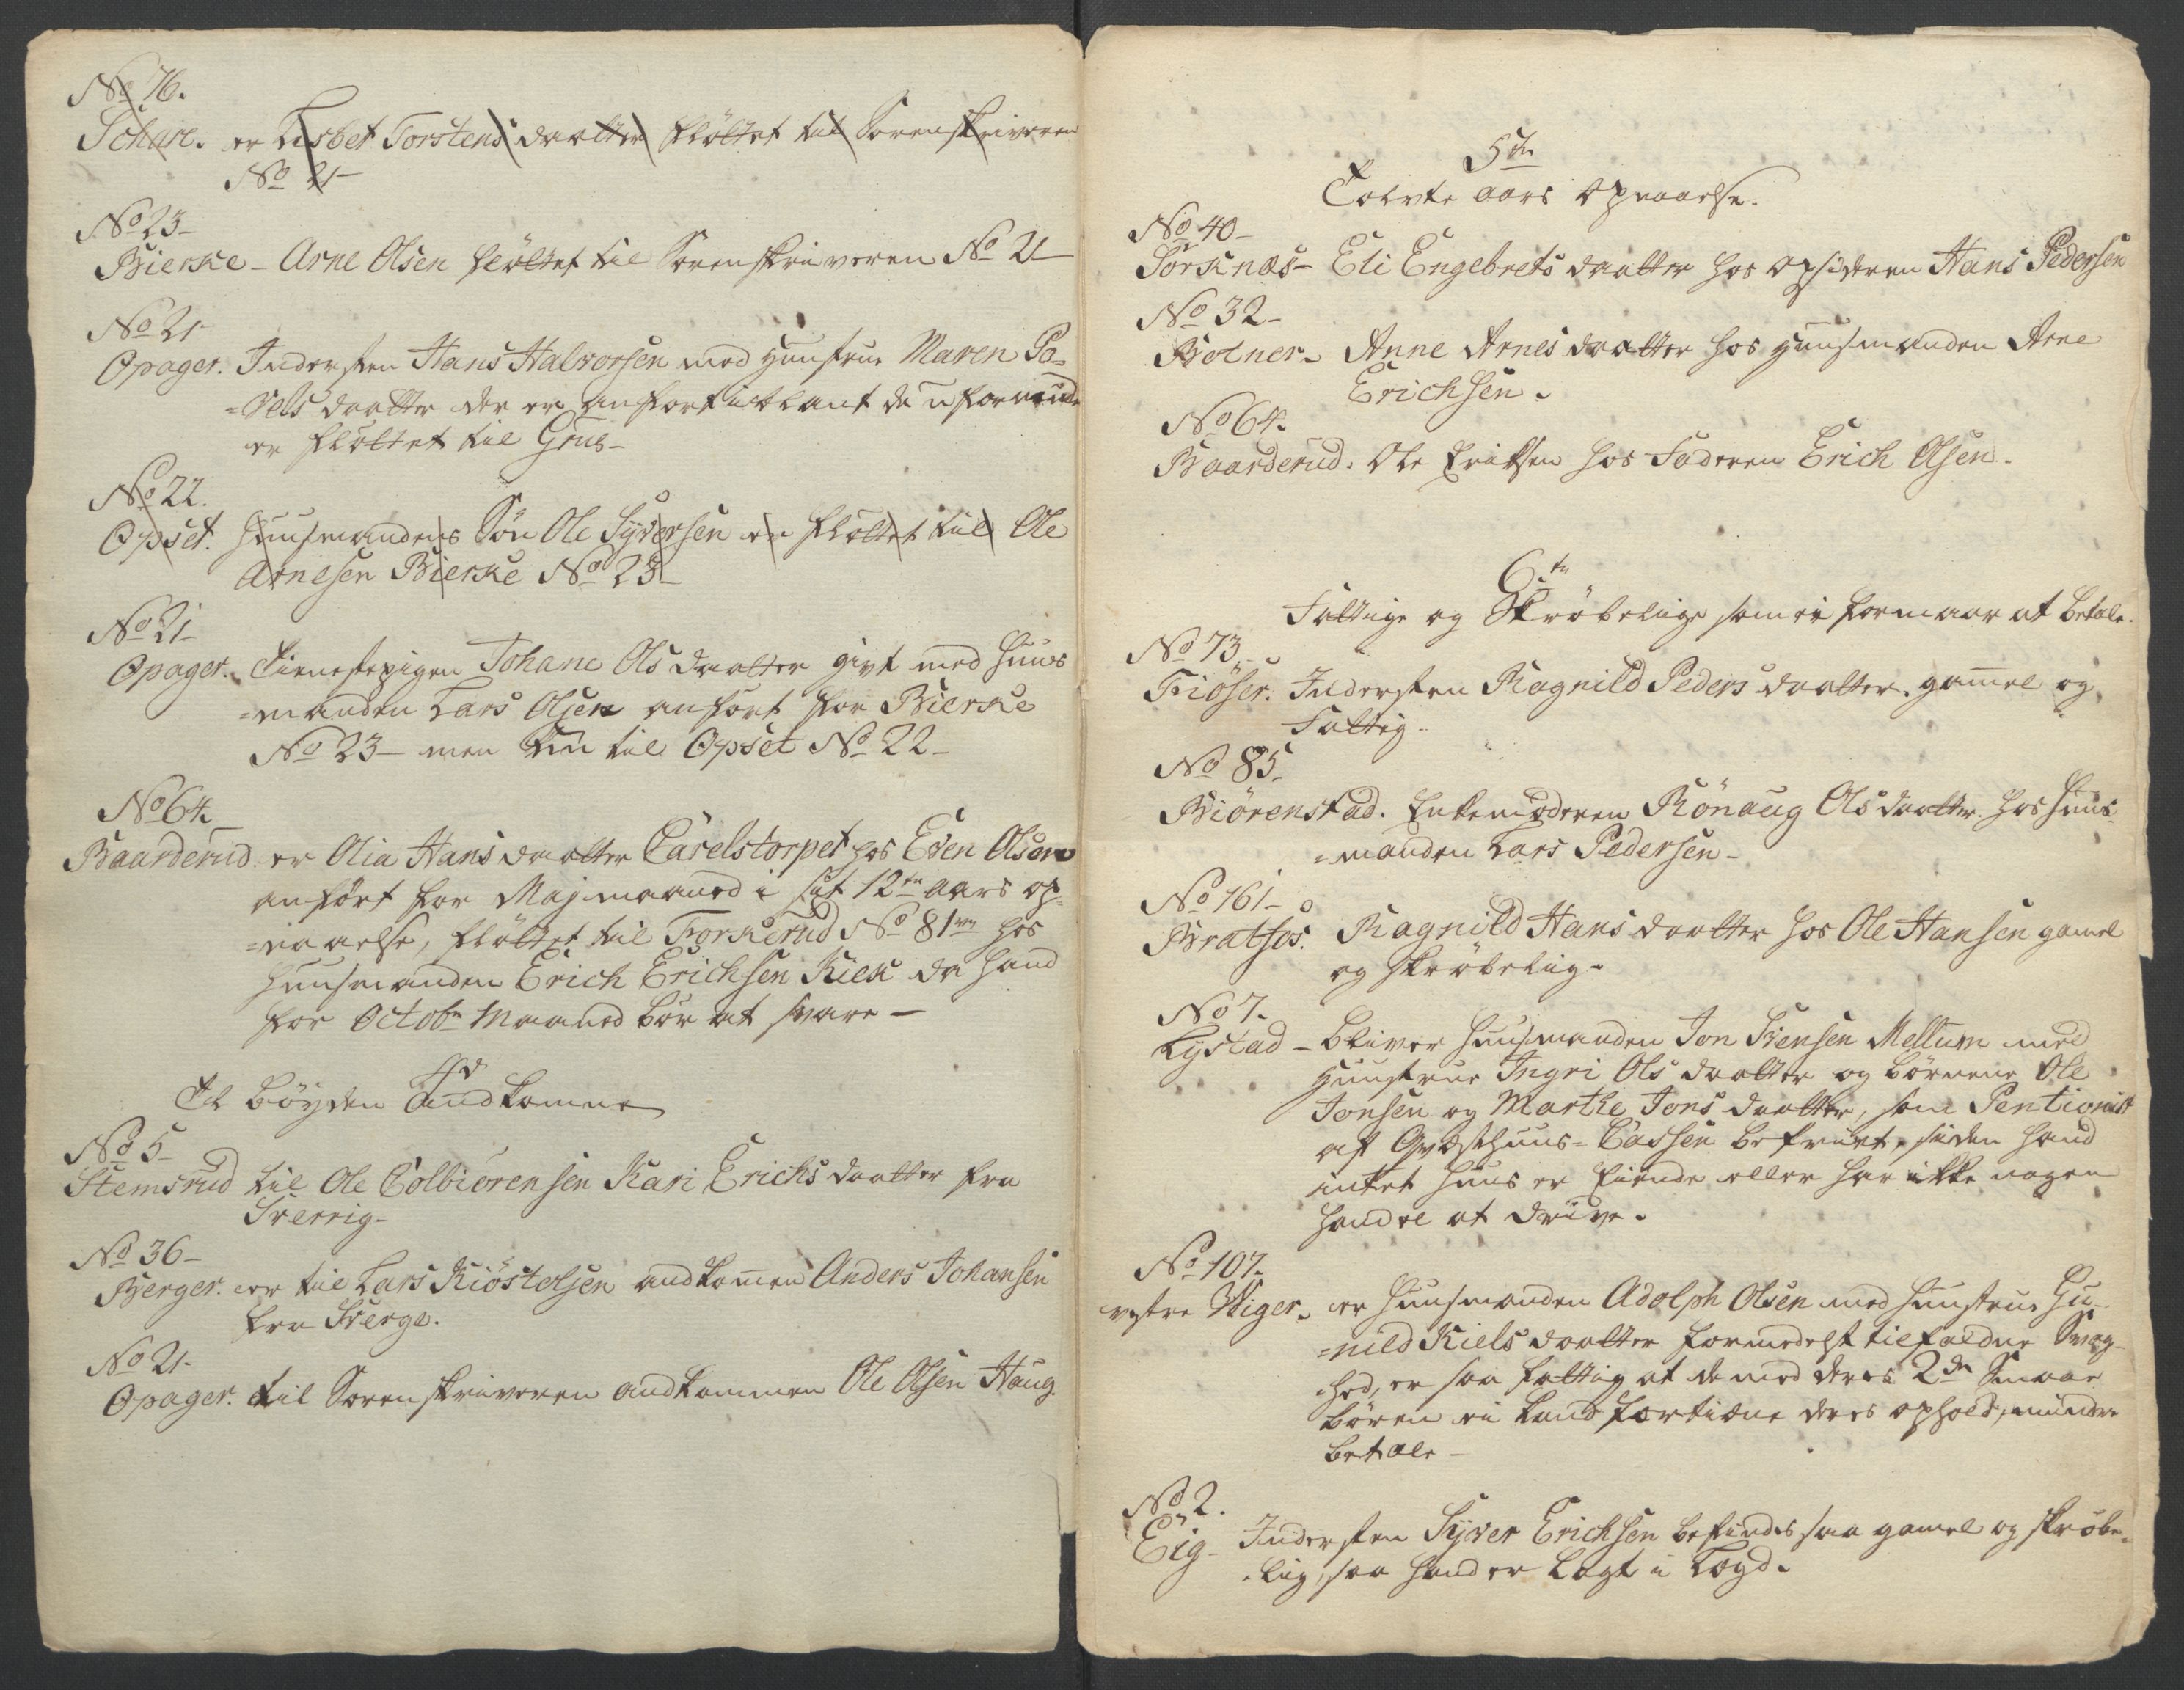 No 76.
Schare. er Lisbet Torstens daatter fløttet til Sorenskriveren
No 21-
No 23-
Bierke - Arne Olsen fløttet til Sorenskriveren No 21-
No 21-
Opager. Indersten Hans Halvorsen med Hunstrue Maren Po-
=vels daatter der er anført iblant de uformuende
er fløttet til Grue-
No 22.
Opset. Huusmandens Søn Ole Syversen er fløttet til Ole
Arnesen Bierke No 23-
No 21-
Opager. Tienestepigen Johane Ols daatter givt med Huus
=manden Lars Olsen anført for Bierke
No 23- men nu til Opset No 22-
No 64
Baarderud er Olia Hans daatter Carelstorpet hos Even Olsen
anført for Maj maaned i sit 12te aars op-
=naaelse, fløttet til Forkerud No 81 hos
Huusmanden Erich Erichsen Kiex da hand
for Octobr Maaned bør at svare -
4de
Til bøyden andkomne
No 5-
Stemsrud til Ole Colbiørensen Kari Erichs daatter fra
Sverrig-
No 36-
Berger. er til Lars Kiøstelsen andkommen Anders Johansen
fra Sverge.
No 21-
Opager. til Sorenskriveren andkommen Ole Olsen Haug.
5te
Tolvte aars Opnaaelse.
No 40-
Sorknæs- Eli Engebrets daatter hos Opsideren Hans Pedersen
No 32-
Bolner- Anne Arnes daatter hos Huusmanden Arne
Erichsen.
No 64.
Baarderud. Ole Eriksen hos Faderen Erich Olsen.
6te
Fattige og Skrøbelige som ei formaar at betale.
No 73
Fiøser. Indersten Ragnild Peders daatter. gamel og
Fattig-
No 85-
Biørenstad. Enkemoderen Rönaug Ols daatter. hos Huus-
=manden Lars Pedersen-
No 161-
Bratfos. Ragnild Hans daatter hos Ole Hansen gamel
og skrøbelig-
No 7-
Lystad - bliver Huusmanden Jon Svensen Mellum med
Hunstrue Ingri Ols daatter og børnene Ole
Jonsen og Marthe Jons daatter, som Pentionist
af Qvæsthuus-Cassen befriet, siden hand
intet Huus er Eiende eller har ikke nogen
handel at drive.
No 107.
vestre Wiger. er Huusmanden Adolph Olsen med Hunstrue Gu-
=nild Kiels daatter formedelst tilfaldne Svag-
hed, er saa fattig at de med deres 2de Smaae
børen ei kand fortiene deres ophold, mindre
betale -
No 2.
Eig- Indersten Syver Erichsen befindes saa gamel og skrøbe-
-lig, saa hand er lagt i Lægd.